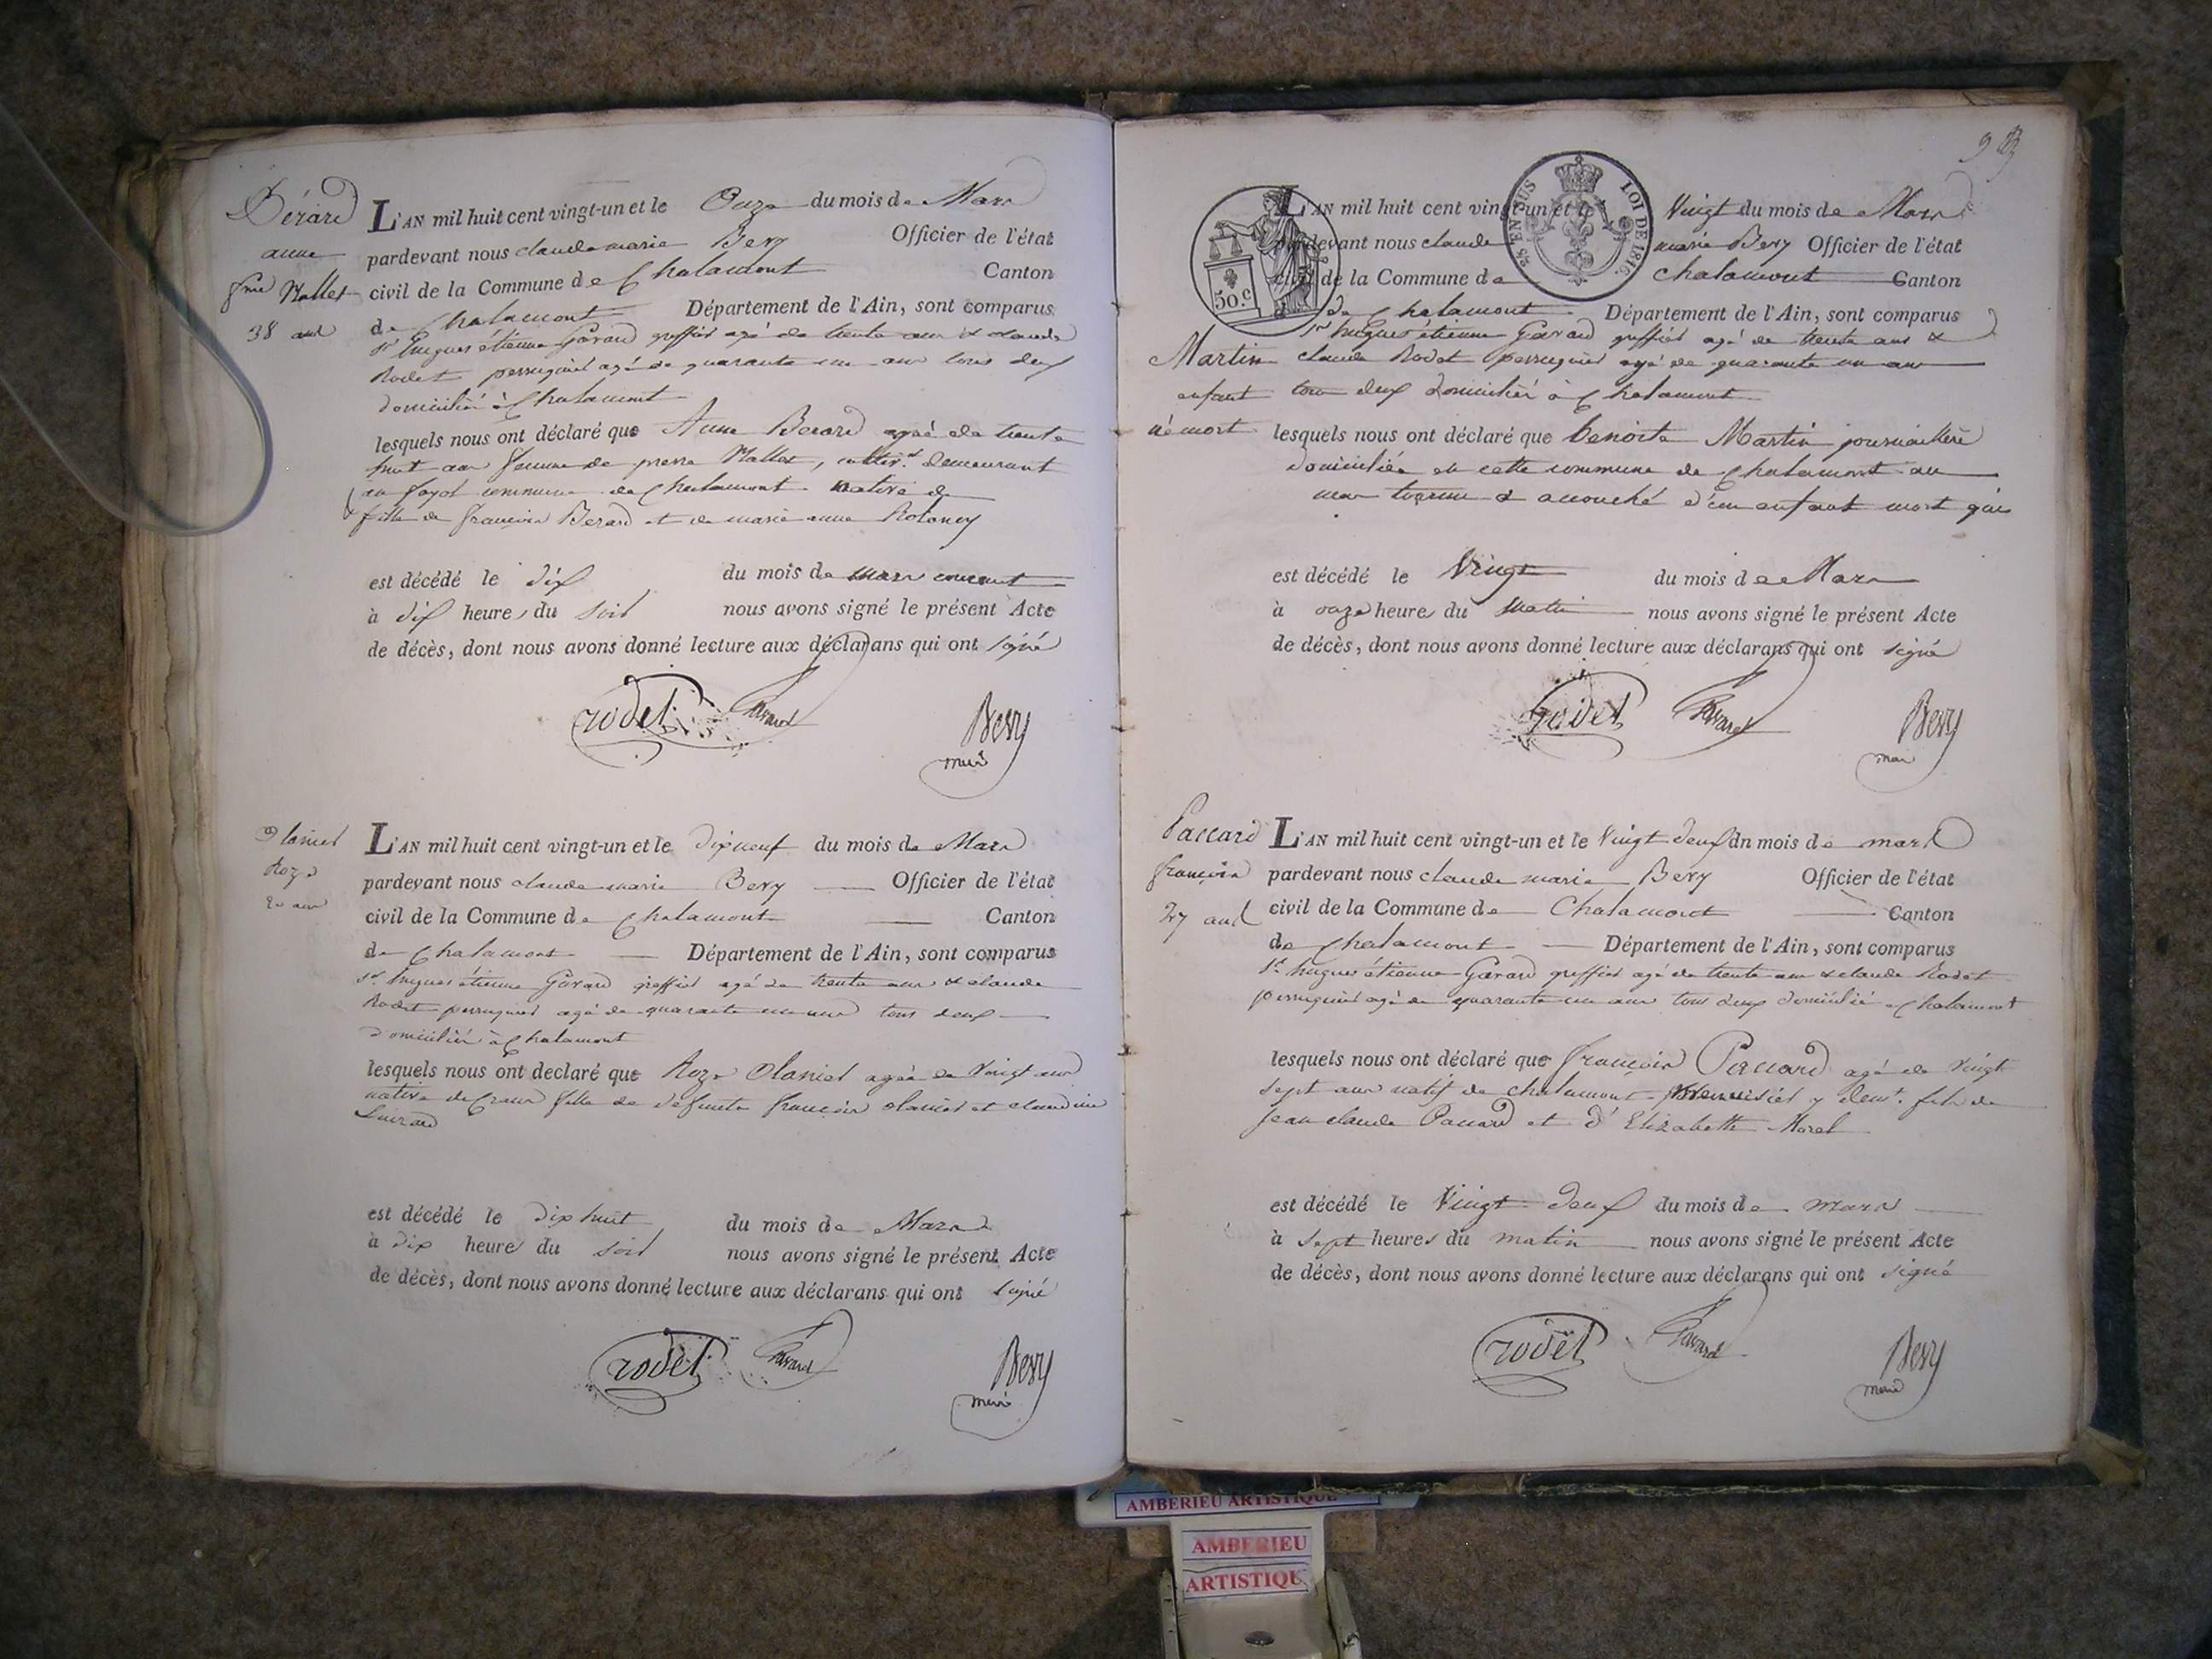 Bérard
anne
fme Mallet
38 ans
L'AN mil huit cent vingt-un et le Onze du mois de Mars
pardevant nous claude marie Bevy Officier de l'état
civil de la Commune de Chalamont Canton
de Chalamont Département de l'Ain, sont comparus
sr hugues étienne Gavard greffier agé de trente ans & claude
Rodet perruquier agé de quarante un ans tous deux
domiciliés à Chalamont
lesquels nous ont déclaré que Anne Berard agée de trente
huit ans femme de pierre Mallet, cultivr demeurant
au fayol commune de Chalamont native de
& fille de françois Berard et de marie anne
est décédé le dix du mois de mars courant
à dix heures du soir nous avons signé le présent Acte
de décès, dont nous avons donné lecture aux déclarans qui ont signé
rodet Gavard Bevy
maire
Roze
20 ans
L'AN mil huit cent vingt-un et le dixneuf du mois de Mars
pardevant nous claude marie Bevy Officier de l'état
civil de la Commune de Chalamont Canton
de Chalamont Département de l'Ain, sont comparus
sr hugues étienne Gavard greffier agé de trente ans & claude
Rodet perruquier agé de quarante un ans tous deux
domiciliés à Chalamont
lesquels nous ont declaré que Roze Olaniel agée de Vingt ans
native de Crans fille de défunts françois olaniel et claudine
est décédé le dix huit du mois de Mars
à dix heures du soir nous avons signé le présent Acte
de décès, dont nous avons donné lecture aux déclarans qui ont signé
rodet Gavard Bevy
maire
50 c
EN SUS
LOI DE 1816
L'AN mil huit cent vingt-un et le Vingt du mois de Mars
pardevant nous claude marie Bevy Officier de l'état
civil de la Commune de Chalamont Canton
de Chalamont Département de l'Ain, sont comparus
sr hugues étienne Gavard greffier agé de trente ans &
Martin
enfant
né mort
claude Rodet perruquier agé de quarante un ans
tous deux domiciliés à Chalamont
lesquels nous ont déclaré que benoite Martin journalière
domiciliée en cette commune de Chalamont au
mas a accouché d'un enfant mort qui
est décédé le Vingt du mois de Mars
à onze heures du matin nous avons signé le présent Acte
de décès, dont nous avons donné lecture aux déclarans qui ont signé
rodet Gavard Bevy
maire
Paccard
françois
27 ans
L'AN mil huit cent vingt-un et le Vingt deux du mois de mars
pardevant nous claude marie Bevy Officier de l'état
civil de la Commune de Chalamont Canton
de Chalamont Département de l'Ain, sont comparus
sr hugues étienne Gavard greffier agé de trente ans & claude Rodet
perruquier agé de quarante un ans tous deux domiciliés a Chalamont
lesquels nous ont déclaré que françois Paccard agé de vingt
sept ans natif de chalamont menuisier y demt. fils de
Jean claude Paccard et d'Elizabeth Morel
est décédé le Vingt deux du mois de mars
à sept heures du matin nous avons signé le présent Acte
de décès, dont nous avons donné lecture aux déclarans qui ont signé
rodet Gavard Bevy
maire
AMBERIEU ARTISTIQUE
AMBERIEU
ARTISTIQU